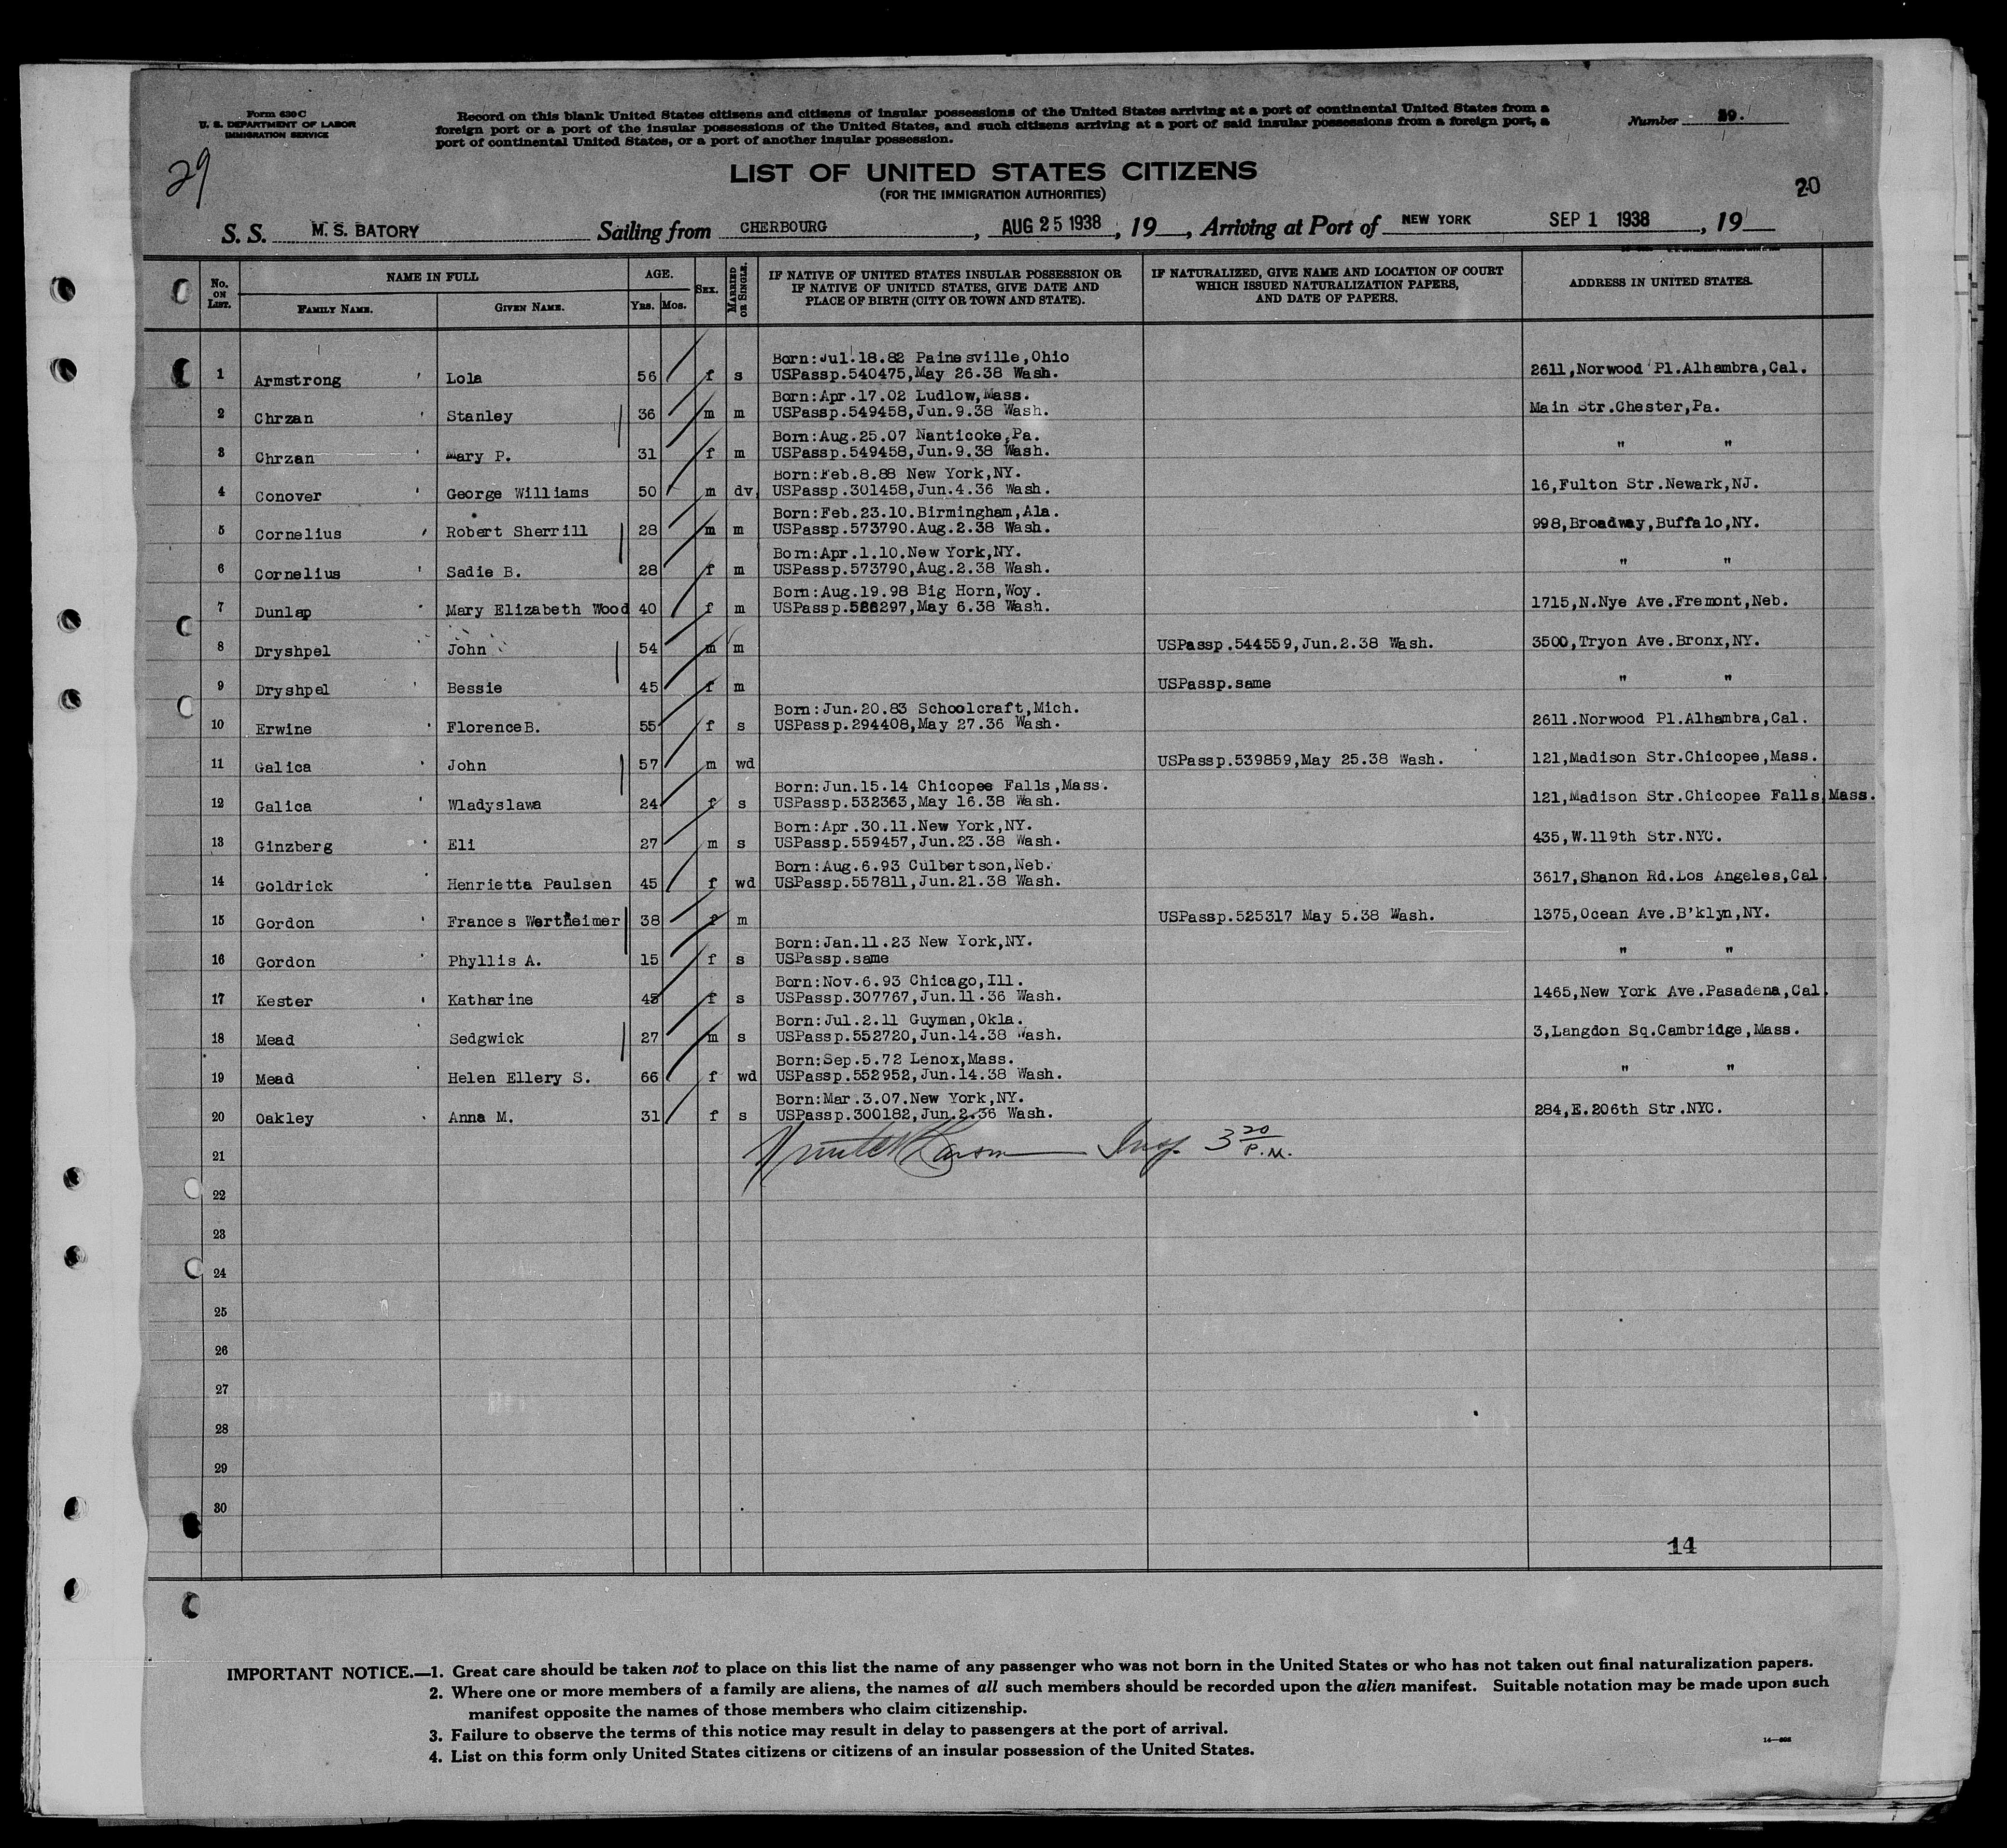 Form 630 C
U. S. DEPARTMENT OF LABOR
IMMIGRATION SERVICE
Record on this blank United States citizens and citizens of insular possessions of the United States arriving at a port of continental United States from a
foreign port or a port of the insular possessions of the United States, and such citizens arriving at a port of said insular possessions from a foreign port, a
port of continental United States, or a port of another insular possession.
Number 29.
29
LIST OF UNITED STATES CITIZENS
(FOR THE IMMIGRATION AUTHORITIES)
20
S. S. M. S. BATORY Sailing from CHERBOURG , AUG 25 1938 , 19 , Arriving at Port of NEW YORK SEP 1 1938 , 19
No. ON LIST.
NAME IN FULL
FAMILY NAME. GIVEN NAME.
AGE.
YRS. MOS.
SEX.
MARRIED OR SINGLE.
IF NATIVE OF UNITED STATES INSULAR POSSESSION OR
IF NATIVE OF UNITED STATES, GIVE DATE AND
PLACE OF BIRTH (CITY OR TOWN AND STATE).
IF NATURALIZED, GIVE NAME AND LOCATION OF COURT
WHICH ISSUED NATURALIZATION PAPERS,
AND DATE OF PAPERS.
ADDRESS IN UNITED STATES.
Born:Jul.18.82 Painesville,Ohio
1 Armstrong Lola 56 f s USPassp.540475,May 26.38 Wash. 2611,Norwood Pl.Alhambra,Cal.
Born:Apr.17.02 Ludlow,Mass.
2 Chrzan Stanley 36 m m USPassp.549458,Jun.9.38 Wash. Main Str.Chester,Pa.
Born:Aug.25.07 Nanticoke,Pa.
3 Chrzan Mary P. 31 f m USPassp.549458,Jun.9.38 Wash. " "
Born:Feb.8.88 New York,NY.
4 Conover George Williams 50 m dv. USPassp.301458,Jun.4.36 Wash. 16,Fulton Str.Newark,NJ.
Born:Feb.23.10.Birmingham,Ala.
5 Cornelius Robert Sherrill 28 m m USPassp.573790.Aug.2.38 Wash. 998,Broadway,Buffalo,NY.
Born:Apr.1.10.New York,NY.
6 Cornelius Sadie B. 28 f m USPassp.573790,Aug.2.38 Wash. " "
Born:Aug.19.98 Big Horn,Woy.
7 Dunlap Mary Elizabeth Wood 40 f m May 6.38 Wash. 1715,N.Nye Ave.Fremont,Neb.
8 Dryshpel John 54 m m USPassp.544559,Jun.2.38 Wash. 3500,Tryon Ave.Bronx,NY.
9 Dryshpel Bessie 45 f m USPassp.same " "
Born:Jun.20.83 Schoolcraft,Mich.
10 Erwine FlorenceB. 55 f s USPassp.294408,May 27.36 Wash. 2611.Norwood Pl.Alhambra,Cal.
11 Galica John 57 m wd USPassp.539859,May 25.38 Wash. 121,Madison Str.Chicopee,Mass.
Born:Jun.15.14 Chicopee Falls,Mass.
12 Galica Wladyslawa 24 f s USPassp.532363,May 16.38 Wash. 121,Madison Str.Chicopee Falls,Mass.
Born:Apr.30.11.New York,NY.
13 Ginzberg Eli 27 m s USPassp.559457,Jun.23.38 Wash. 435,W.119th Str.NYC.
Born:Aug.6.93 Culbertson,Neb.
14 Goldrick Henrietta Paulsen 45 f wd USPassp.557811,Jun.21.38 Wash. 3617,Shanon Rd.Los Angeles,Cal.
15 Gordon Frances Wertheimer 38 f m USPassp.525317 May 5.38 Wash. 1375,Ocean Ave.B'klyn,NY.
Born:Jan.11.23 New York,NY.
16 Gordon Phyllis A. 15 f s USPassp.same " "
Born:Nov.6.93 Chicago,Ill.
17 Kester Katharine 45 f s USPassp.307767,Jun.11.36 Wash. 1465,New York Ave.Pasadena,Cal.
Born:Jul.2.11 Guyman,Okla.
18 Mead Sedgwick 27 m s USPassp.552720,Jun.14.38 Wash. 3,Langdon Sq.Cambridge,Mass.
Born:Sep.5.72 Lenox,Mass.
19 Mead Helen Ellery S. 66 f wd USPassp.552952,Jun.14.38 Wash. " "
Born:Mar.3.07.New York,NY.
20 Oakley Anna M. 31 f s USPassp.300182,Jun.2.36 Wash. 284,E.206th Str.NYC.
21 Insp. 3 20 P.M.
22
23
24
25
26
27
28
29
30
14
IMPORTANT NOTICE.—1. Great care should be taken not to place on this list the name of any passenger who was not born in the United States or who has not taken out final naturalization papers.
2. Where one or more members of a family are aliens, the names of all such members should be recorded upon the alien manifest. Suitable notation may be made upon such
manifest opposite the names of those members who claim citizenship.
3. Failure to observe the terms of this notice may result in delay to passengers at the port of arrival.
4. List on this form only United States citizens or citizens of an insular possession of the United States.